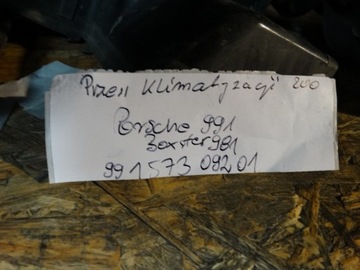 Przew Klimatyzacji 200
Porsche 991
Boxster 981
991 573 092 01